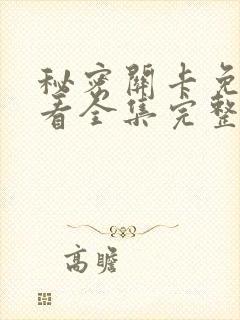 秘密關卡免
看全集完整
高瞻